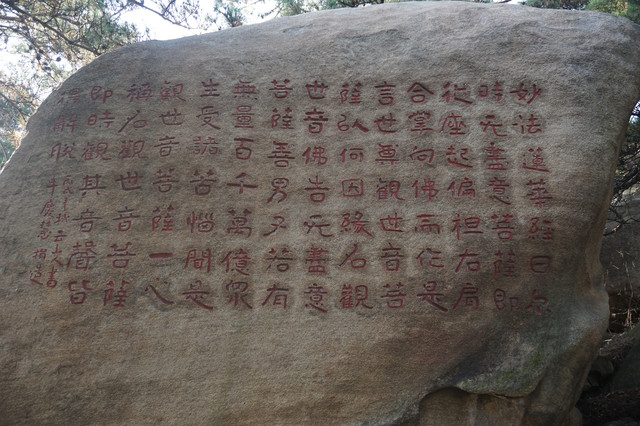 妙法蓮華經曰尔
時无盡意菩薩即
從座起偏袒右肩
合掌向佛而作是
言世尊觀世音菩
薩以何因緣名觀
世音佛告无盡意
菩薩善男子若有
無量百千萬億眾
生受諸苦惱聞是
觀世音菩薩一心
稱名觀世音菩薩
即時觀其音聲皆
得解脫